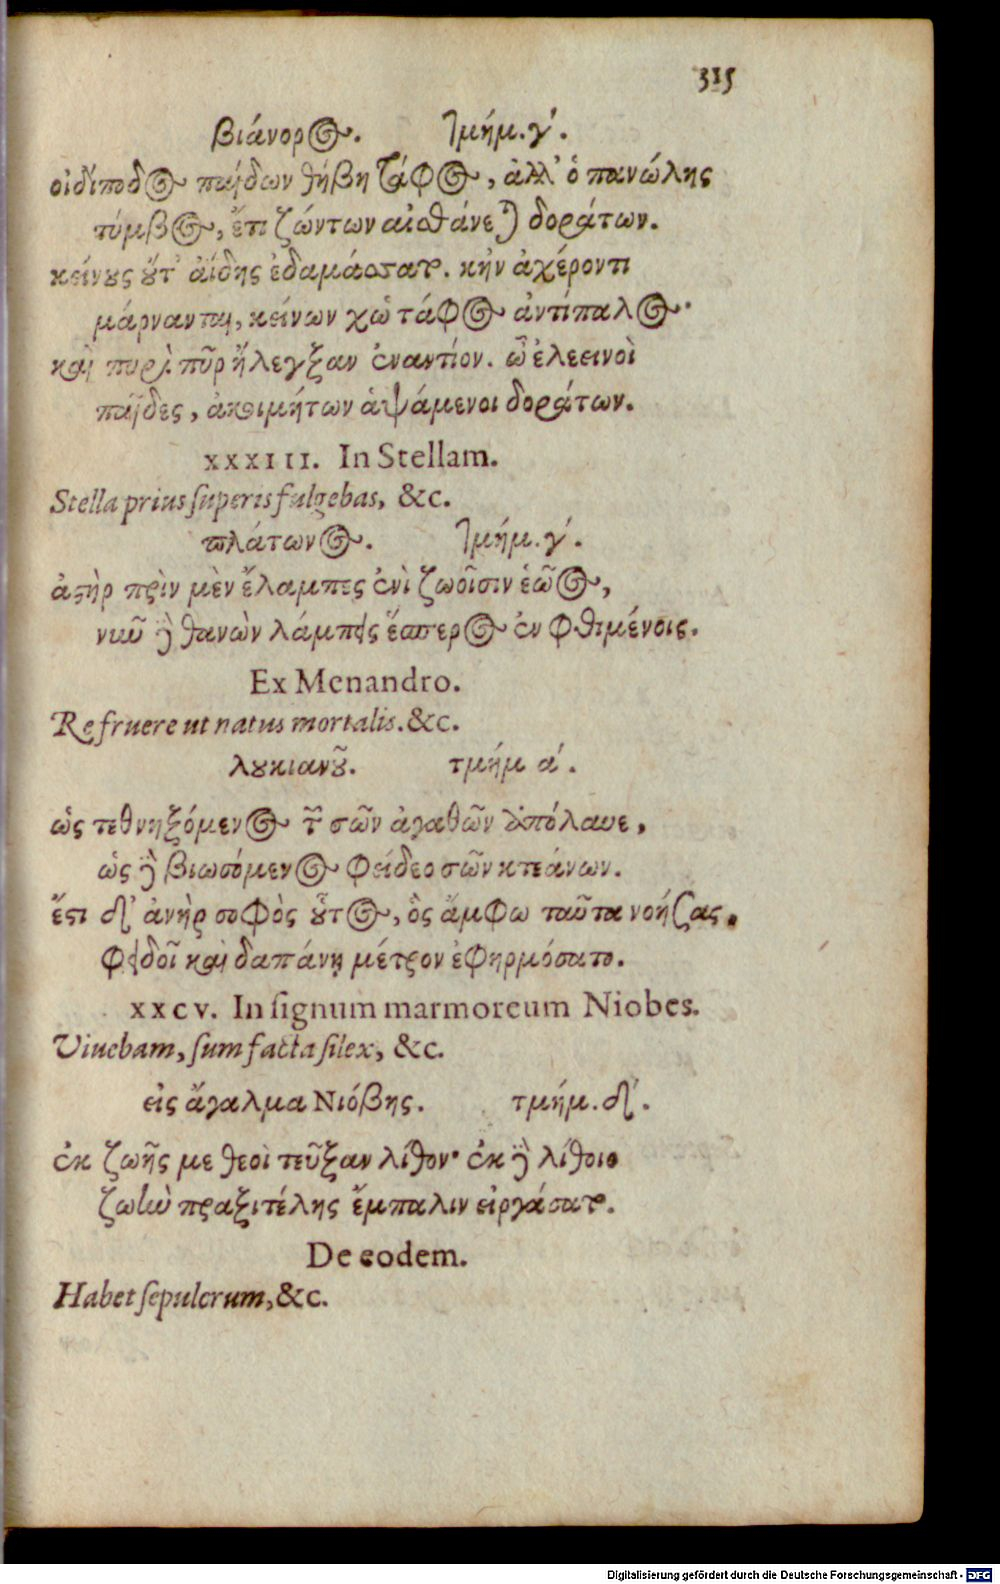 315
βιάνορος. τμήμ. γʹ.
οἰδίποδος παίδων θήβη τάφος, ἀλλ' ὁ πανώλης
τύμβος, ἔτι ζώντων αἰσθάνεται δοράτων.
κείνους οὔτ' ἀΐδης ἐδαμάσσατο. κἠν ἀχέροντι
μάρνανται, κείνων χὡ τάφος ἀντίπαλος·
καὶ πυρὶ πῦρ ἤλεγξαν ἐναντίον. ὦ ἐλεεινοὶ
παῖδες, ἀκοιμήτων ἁψάμενοι δοράτων.
XXXIII. In Stellam.
Stella prius superis fulgebas, &c.
πλάτωνος. τμήμ. γʹ.
ἀστὴρ πρὶν μὲν ἔλαμπες ἐνὶ ζωοῖσιν ἑῶος,
νῦν δὲ θανὼν λάμπεις ἕσπερος ἐν φθιμένοις.
Ex Menandro.
Re fruere ut natus mortalis. &c.
λουκιανοῦ. τμήμ αʹ.
ὡς τεθνηξόμενος τῶν σῶν ἀγαθῶν ἀπόλαυε,
ὡς δὲ βιωσόμενος φείδεο σῶν κτεάνων.
ἔστι δ' ἀνὴρ σοφὸς οὗτος, ὃς ἄμφω ταῦτα νοήσας.
φειδοῖ καὶ δαπάνῃ μέτρον ἐφηρμόσατο.
XXCV. In signum marmoreum Niobes.
Viuebam, sum facta silex, &c.
εἰς ἄγαλμα Νιόβης. τμήμ. δʹ.
ἐκ ζωῆς με θεοὶ τεῦξαν λίθον· ἐκ δὲ λίθοιο
ζωὴν πραξιτέλης ἔμπαλιν εἰργάσατο.
De eodem.
Habet sepulcrum, &c.
Digitalisierung gefördert durch die Deutsche Forschungsgemeinschaft - DFG